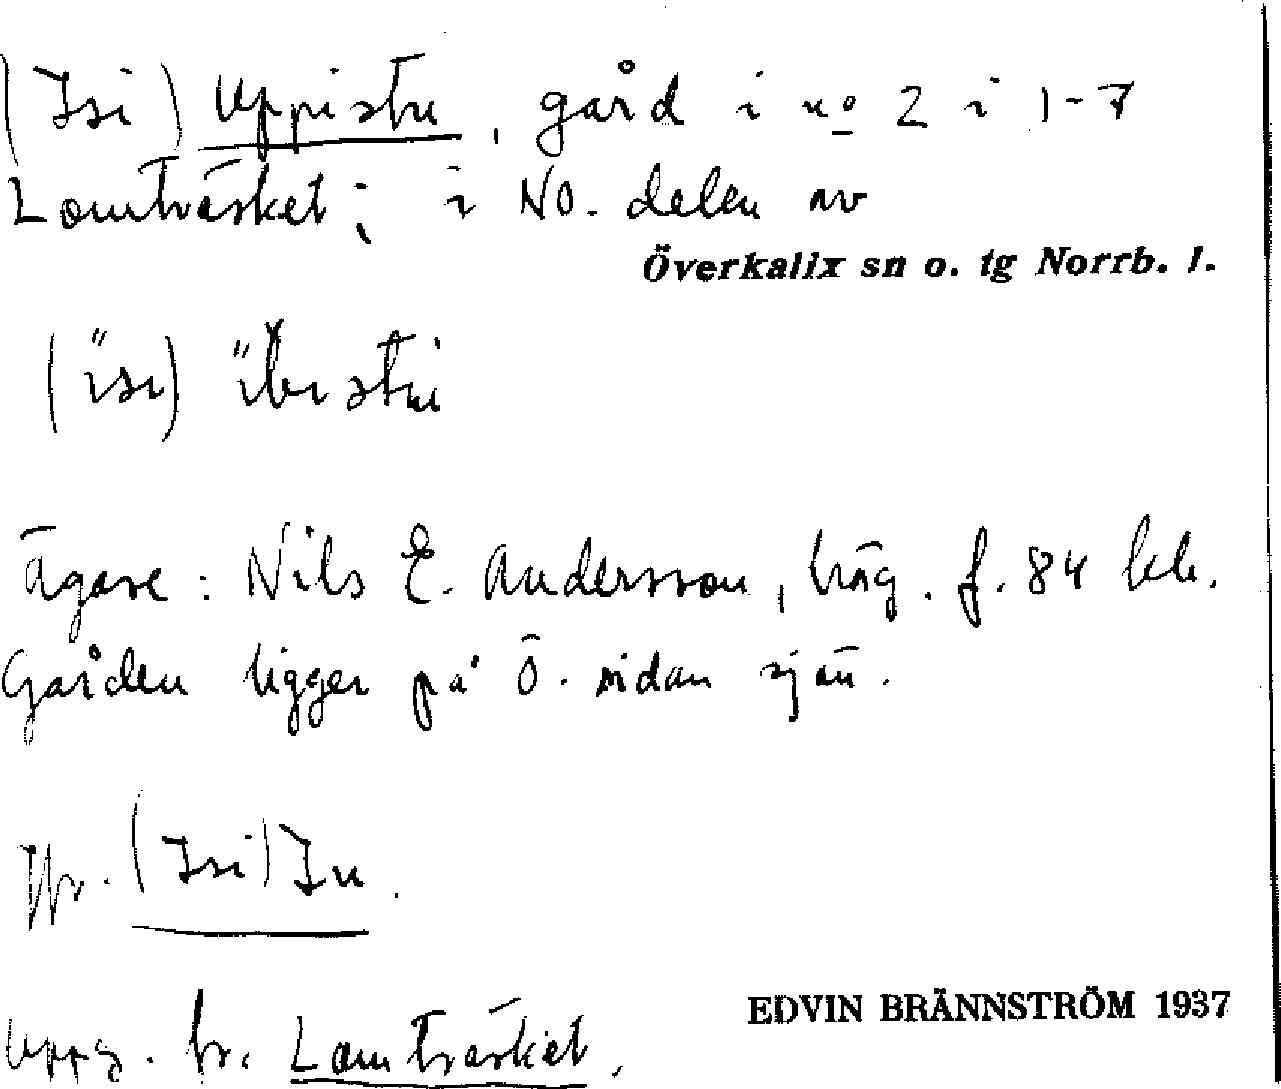 (Isi) Uppistu, gård i no 2 i 1-7
Lomträsket; i NO. delen av
Överkalix sn o. tg Norrb. l.
Ägare: Nils E. Andersson, häg. f. 84 kh.
Gården ligger på Ö. sidan sjön.
Jfr. (Isi) In.
Uppg. fr. Lomträsket.
EDVIN BRÄNNSTRÖM 1937